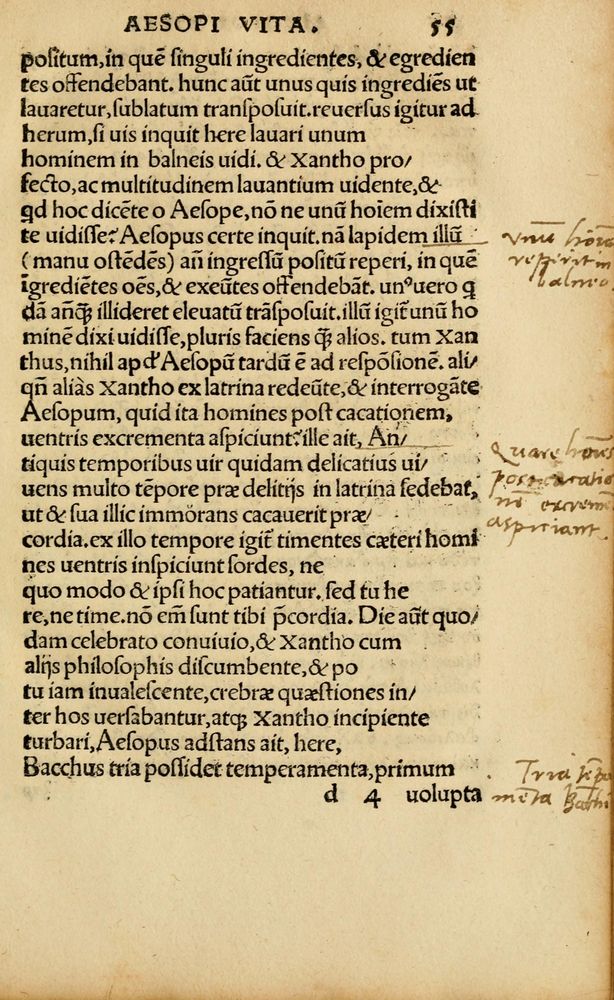 AESOPI VITA. 55
positum,in quē singuli ingredientes, & egredien
tes offendebant. hunc aūt unus quis ingrediēs ut
lauaretur,sublatum transposuit.reuersus igitur ad
herum,si uis inquit here lauari unum
hominem in balneis uidi. & Xantho pro/
fecto,ac multitudinem lauantium uidente,&
qd hoc dicēte o Aesope,nō ne unū hoīem dixisti
te uidisse? Aesopus certe inquit.nā lapidem illū
(manu ostēdēs) añ ingressū positū reperi, in quē
īgrediētes oēs,& exeūtes offendebāt. unꝰuero q
dā añꝗ̄ illideret eleuatū trāsposuit.illū igiť unū ho
minē dixi uidisse,pluris faciens ꝗ̄ alios. tum Xan
thus,nihil apď Aesopū tardū ē ad respōsionē. ali/
qñ aliàs Xantho ex latrina redeūte,& interrogāte
Aesopum, quid ita homines post cacationem,
uentris excrementa aspiciunt? ille ait, An/
tiquis temporibus uir quidam delicatius ui/
uens multo tēpore præ delitijs in latrina sedebat,
ut & sua illic immōrans cacauerit præ/
cordia.ex illo tempore igiť timentes cæteri homi
nes uentris inspiciunt sordes, ne
quo modo & ipsi hoc patiantur. sed tu he
re,ne time.nō em̄ sunt tibi p̄cordia. Die aūt quo/
dam celebrato conuiuio,& Xantho cum
alijs philosophis discumbente,& po
tu iam inualescente,crebræ quæstiones in/
ter hos uersabantur,atqꝫ Xantho incipiente
turbari,Aesopus adstans ait, here,
Bacchus tria possidet temperamenta,primum
d 4 uolupta
Vnū hoīē
reperit in
balneo
Quare hoīes
post cacatio
nē excrem̄
aspiciant.
Tria tēpa
mēta Bacchi